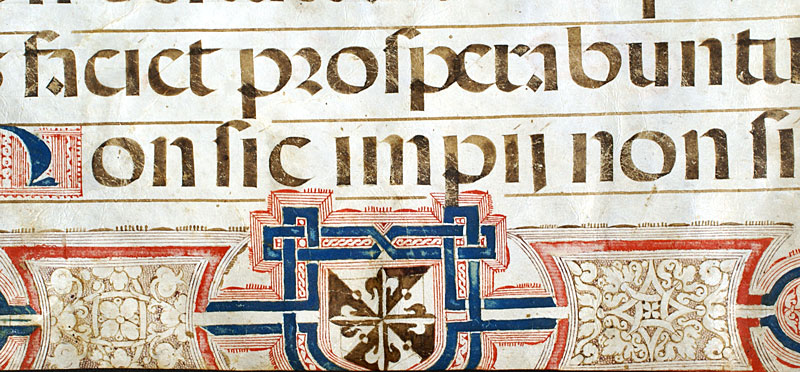 faciet prosperabuntu
Non sic impij non si